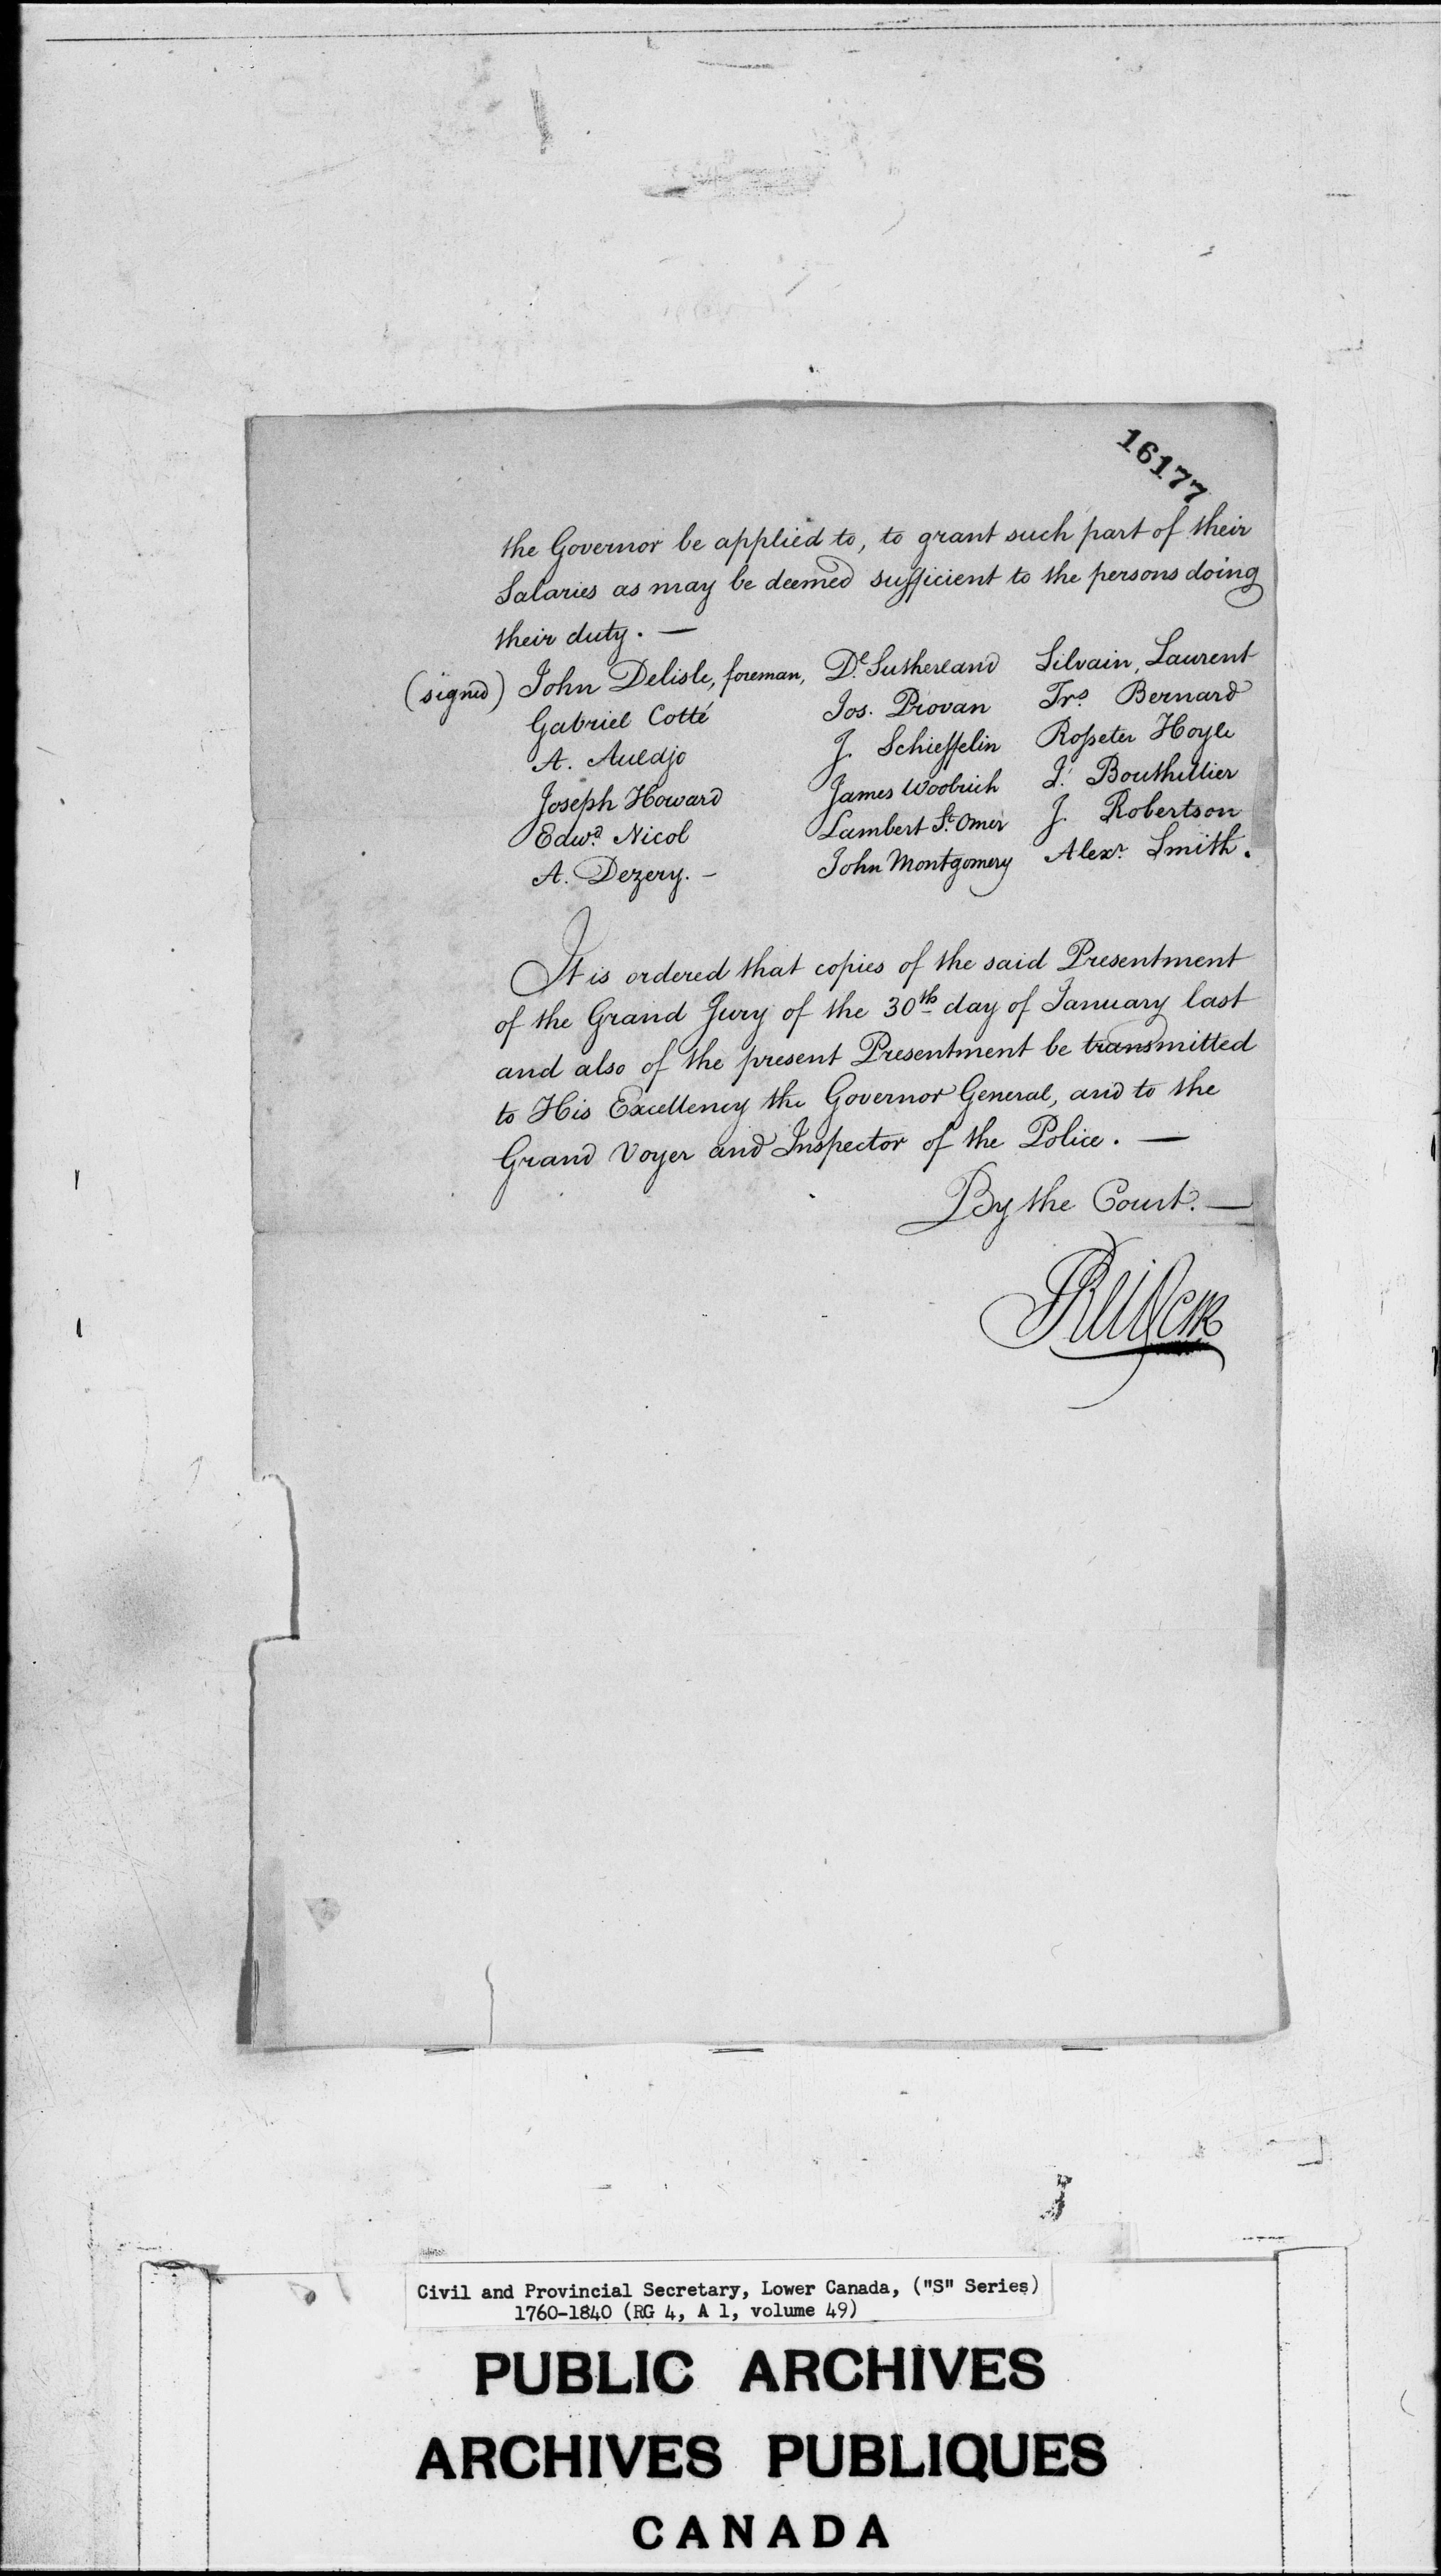 16177
the Governor be applied to, to grant such part of their
Salaries as may be deemed sufficient to the persons doing
their duty. —
(signed) John Delisle, foreman, Dl. Sutherland Silvain Laurent
Gabriel Cotté Jos. Provan Frs. Bernard
A. Auldjo J. Schieffelin Rosseter Hoyle
Joseph Howard James Woolrich J. Bouthillier
Edwd. Nicol Lambert St. Omer J. Robertson
A. Dezery. - John Montgomery Alexr. Smith.
It is ordered that copies of the said Presentment
of the Grand Jury of the 30th day of January last
and also of the present Presentment be transmitted
to His Excellency the Governor General, and to the
Grand Voyer and Inspector of the Police. —
By the Court. —
Civil and Provincial Secretary, Lower Canada, ("S" Series)
1760-1840 (RG 4, A 1, volume 49)
PUBLIC ARCHIVES
ARCHIVES PUBLIQUES
CANADA